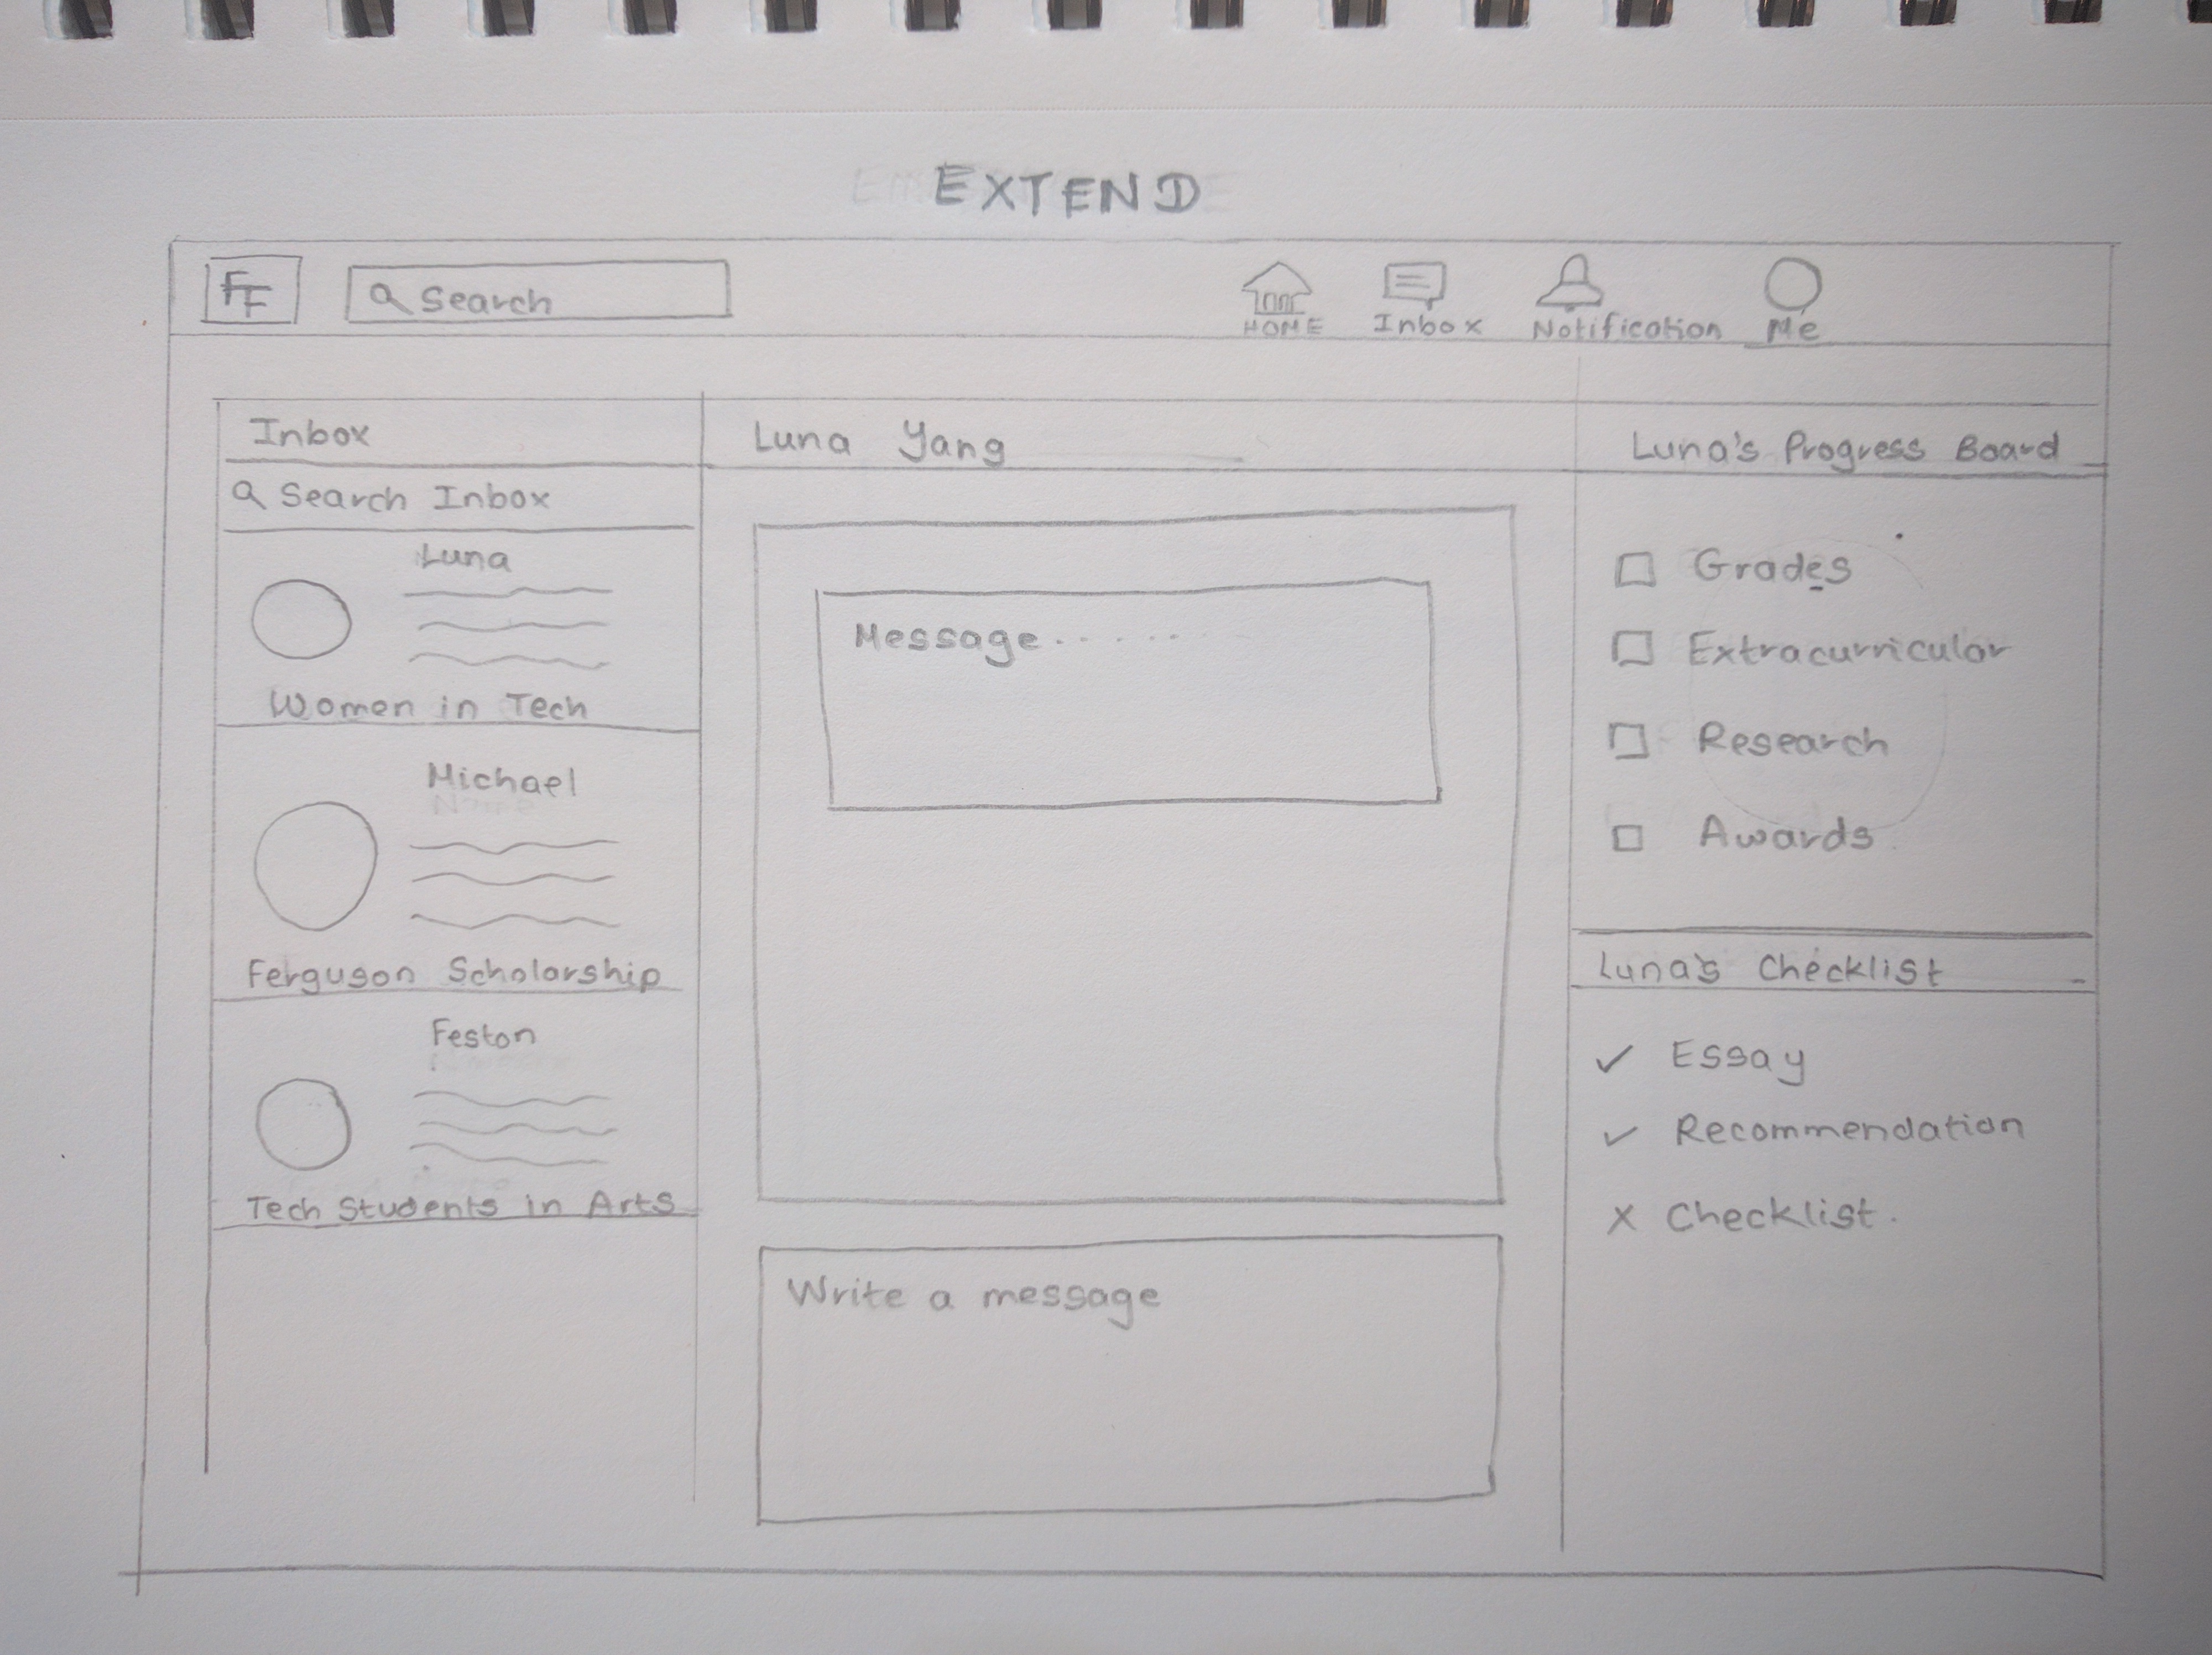 EXTEND
FF
Search
HOME
Inbox
Notification
Me
Inbox
Search Inbox
Luna
Women in Tech
Michael
Ferguson Scholarship
Feston
Tech Students in Arts
Luna Yang
Message......
Write a message
Luna's Progress Board
Grades
Extracurricular
Research
Awards
Luna's Checklist
✓ Essay
✓ Recommendation
X Checklist.